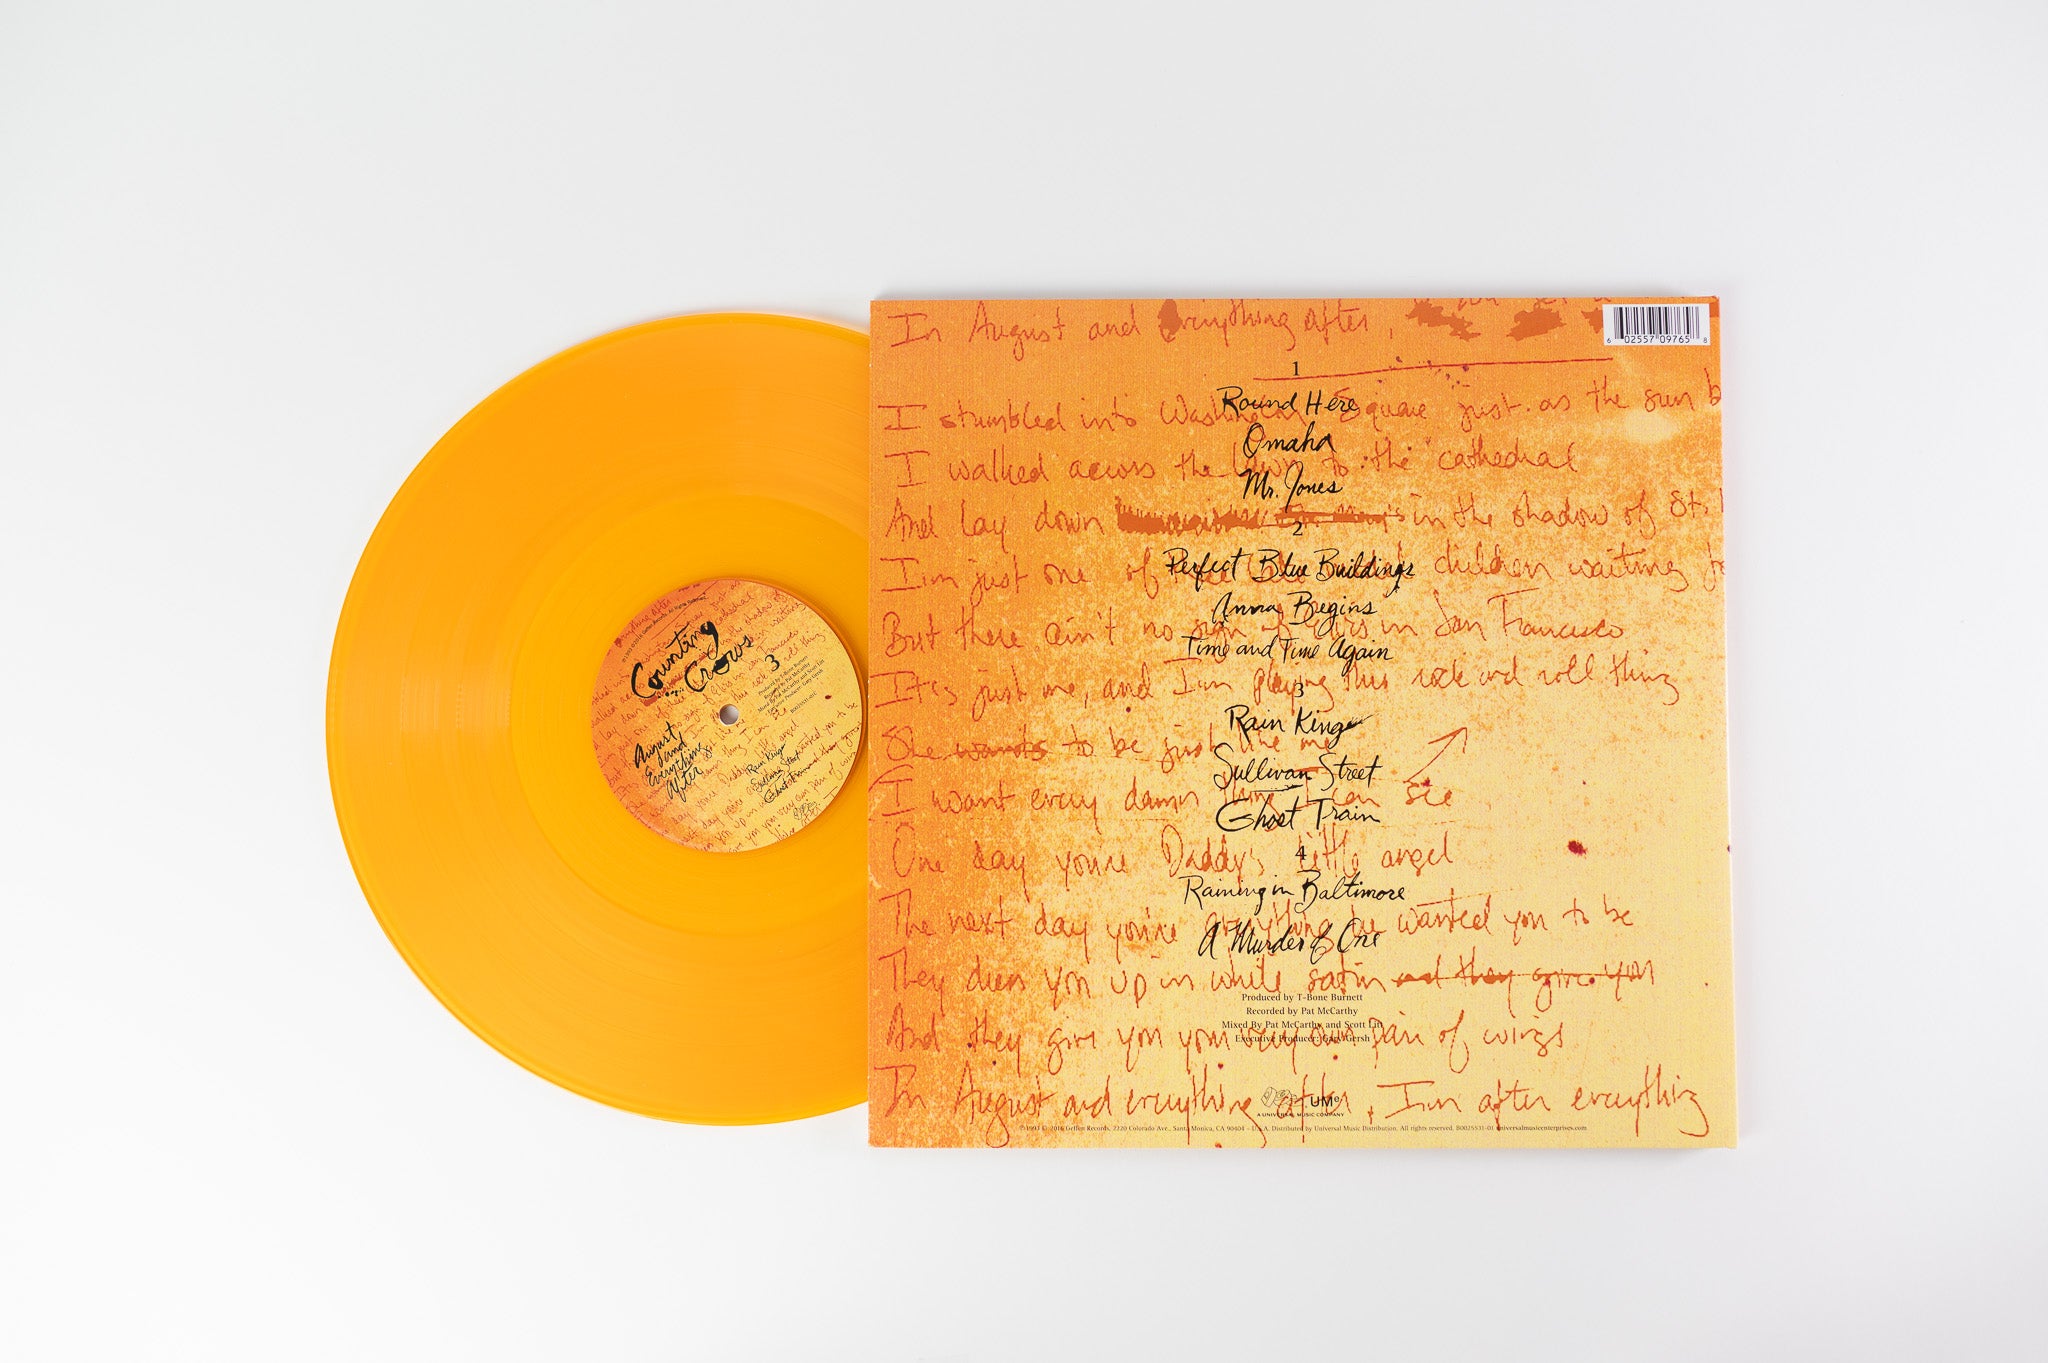 Counting
Crows
August
and
Everything
After
3
Produced by T-Bone Burnett
Recorded by Pat McCarthy
Rain King
Sullivan Street
Ghost Train
In August and everything after,
6 02557 09765 8
1
I stumbled into Washington Square just as the sun b
Round Here
Omaha
I walked across the lawn to the cathedral
Mr. Jones
And lay down in the shadow of St.
2
I'm just one of these children waiting
Perfect Blue Buildings
Anna Begins
But there ain't no sign of in San Francisco
Time and Time Again
It's just me, and I'm playing this rock and roll thing
3
Rain King
She wants to be just like me
Sullivan Street
I want every damn thing I can see
Ghost Train
One day you're Daddy's little angel
4
Raining in Baltimore
The next day you're everything he wanted you to be
A Murder of One
They dress you up in white satin and they give you
Produced by T-Bone Burnett
Recorded by Pat McCarthy
Mixed By Pat McCarthy and Scott Litt
And they give you your very own pair of wings
Executive Producer: Gary Gersh
UMe
A UNIVERSAL MUSIC COMPANY
In August and everything after, I'm after everything
℗1993 © 2016 Geffen Records, 2220 Colorado Ave., Santa Monica, CA 90404 – U.S.A. Distributed by Universal Music Distribution. All rights reserved. B0025531-01 universalmusicenterprises.com